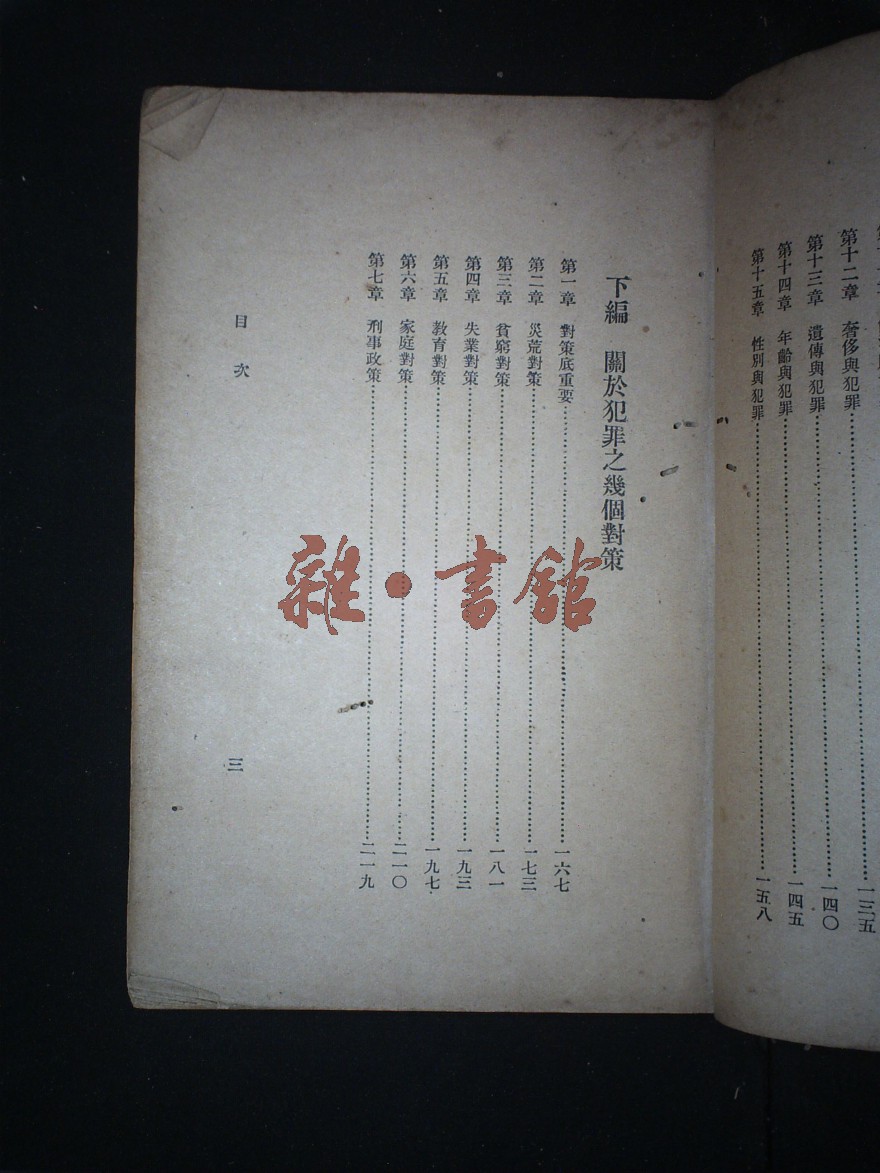 第十二章　奢侈與犯罪…………一三五
第十三章　遺傳與犯罪…………一四〇
第十四章　年齡與犯罪…………一四五
第十五章　性別與犯罪…………一五八
下編　關於犯罪之幾個對策
第一章　對策底重要…………一六七
第二章　災荒對策…………一七三
第三章　貧窮對策…………一八一
第四章　失業對策…………一九三
第五章　教育對策…………一九七
第六章　家庭對策…………二一〇
第七章　刑事政策…………二一九
目次
三
雜·書館